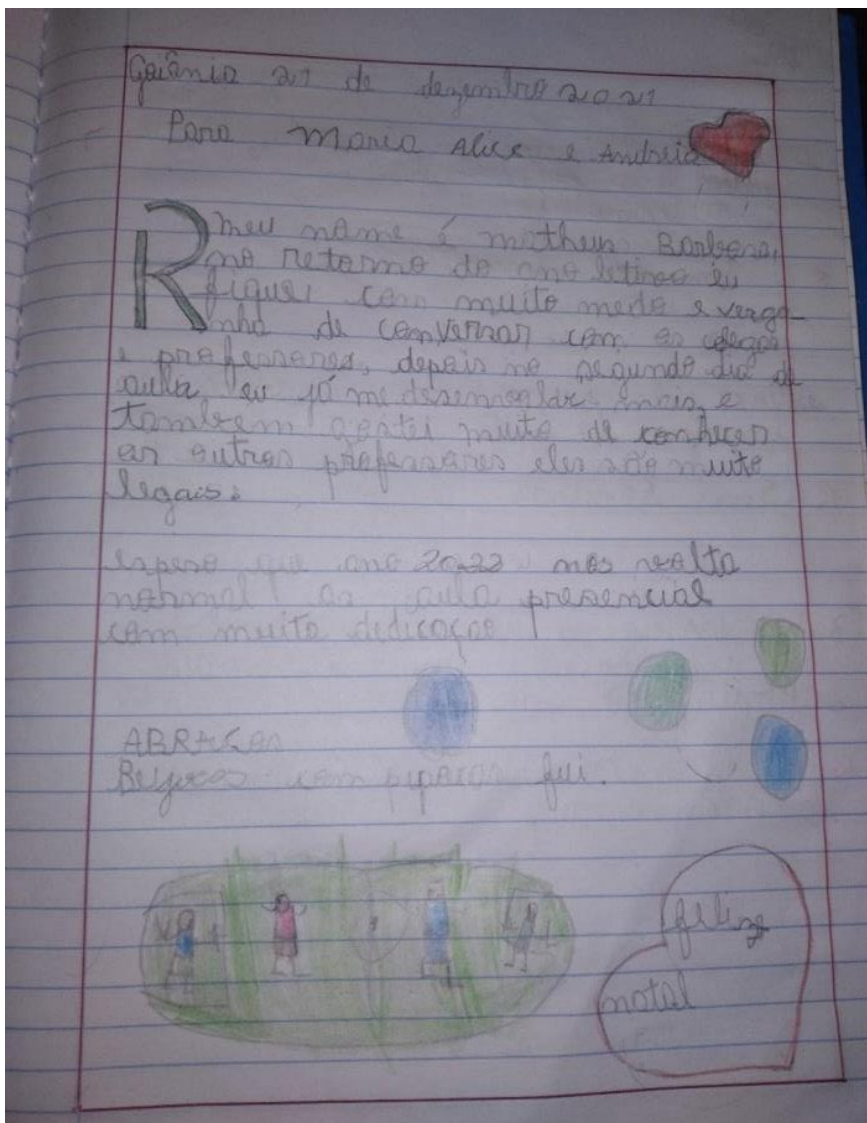 Goiânia 21 de dezembro 2021
Para maria Alice e Andreia
R
meu nome é matheus Barbosa,
no retorno do ano letivo eu
fiquei com muito medo e vergo-
nha de conversar com os colegas
e professores, depois no segundo dia de
aula, eu já me desenrolar mais, e
tambem gostei muito de conhecer
os outros professores eles são muito
legais.
espero que ano 2022 nos volta
normal as aula presencial
com muito dedicação
ABRAÇos
Beijocas com pipocas fui.
felize
natal